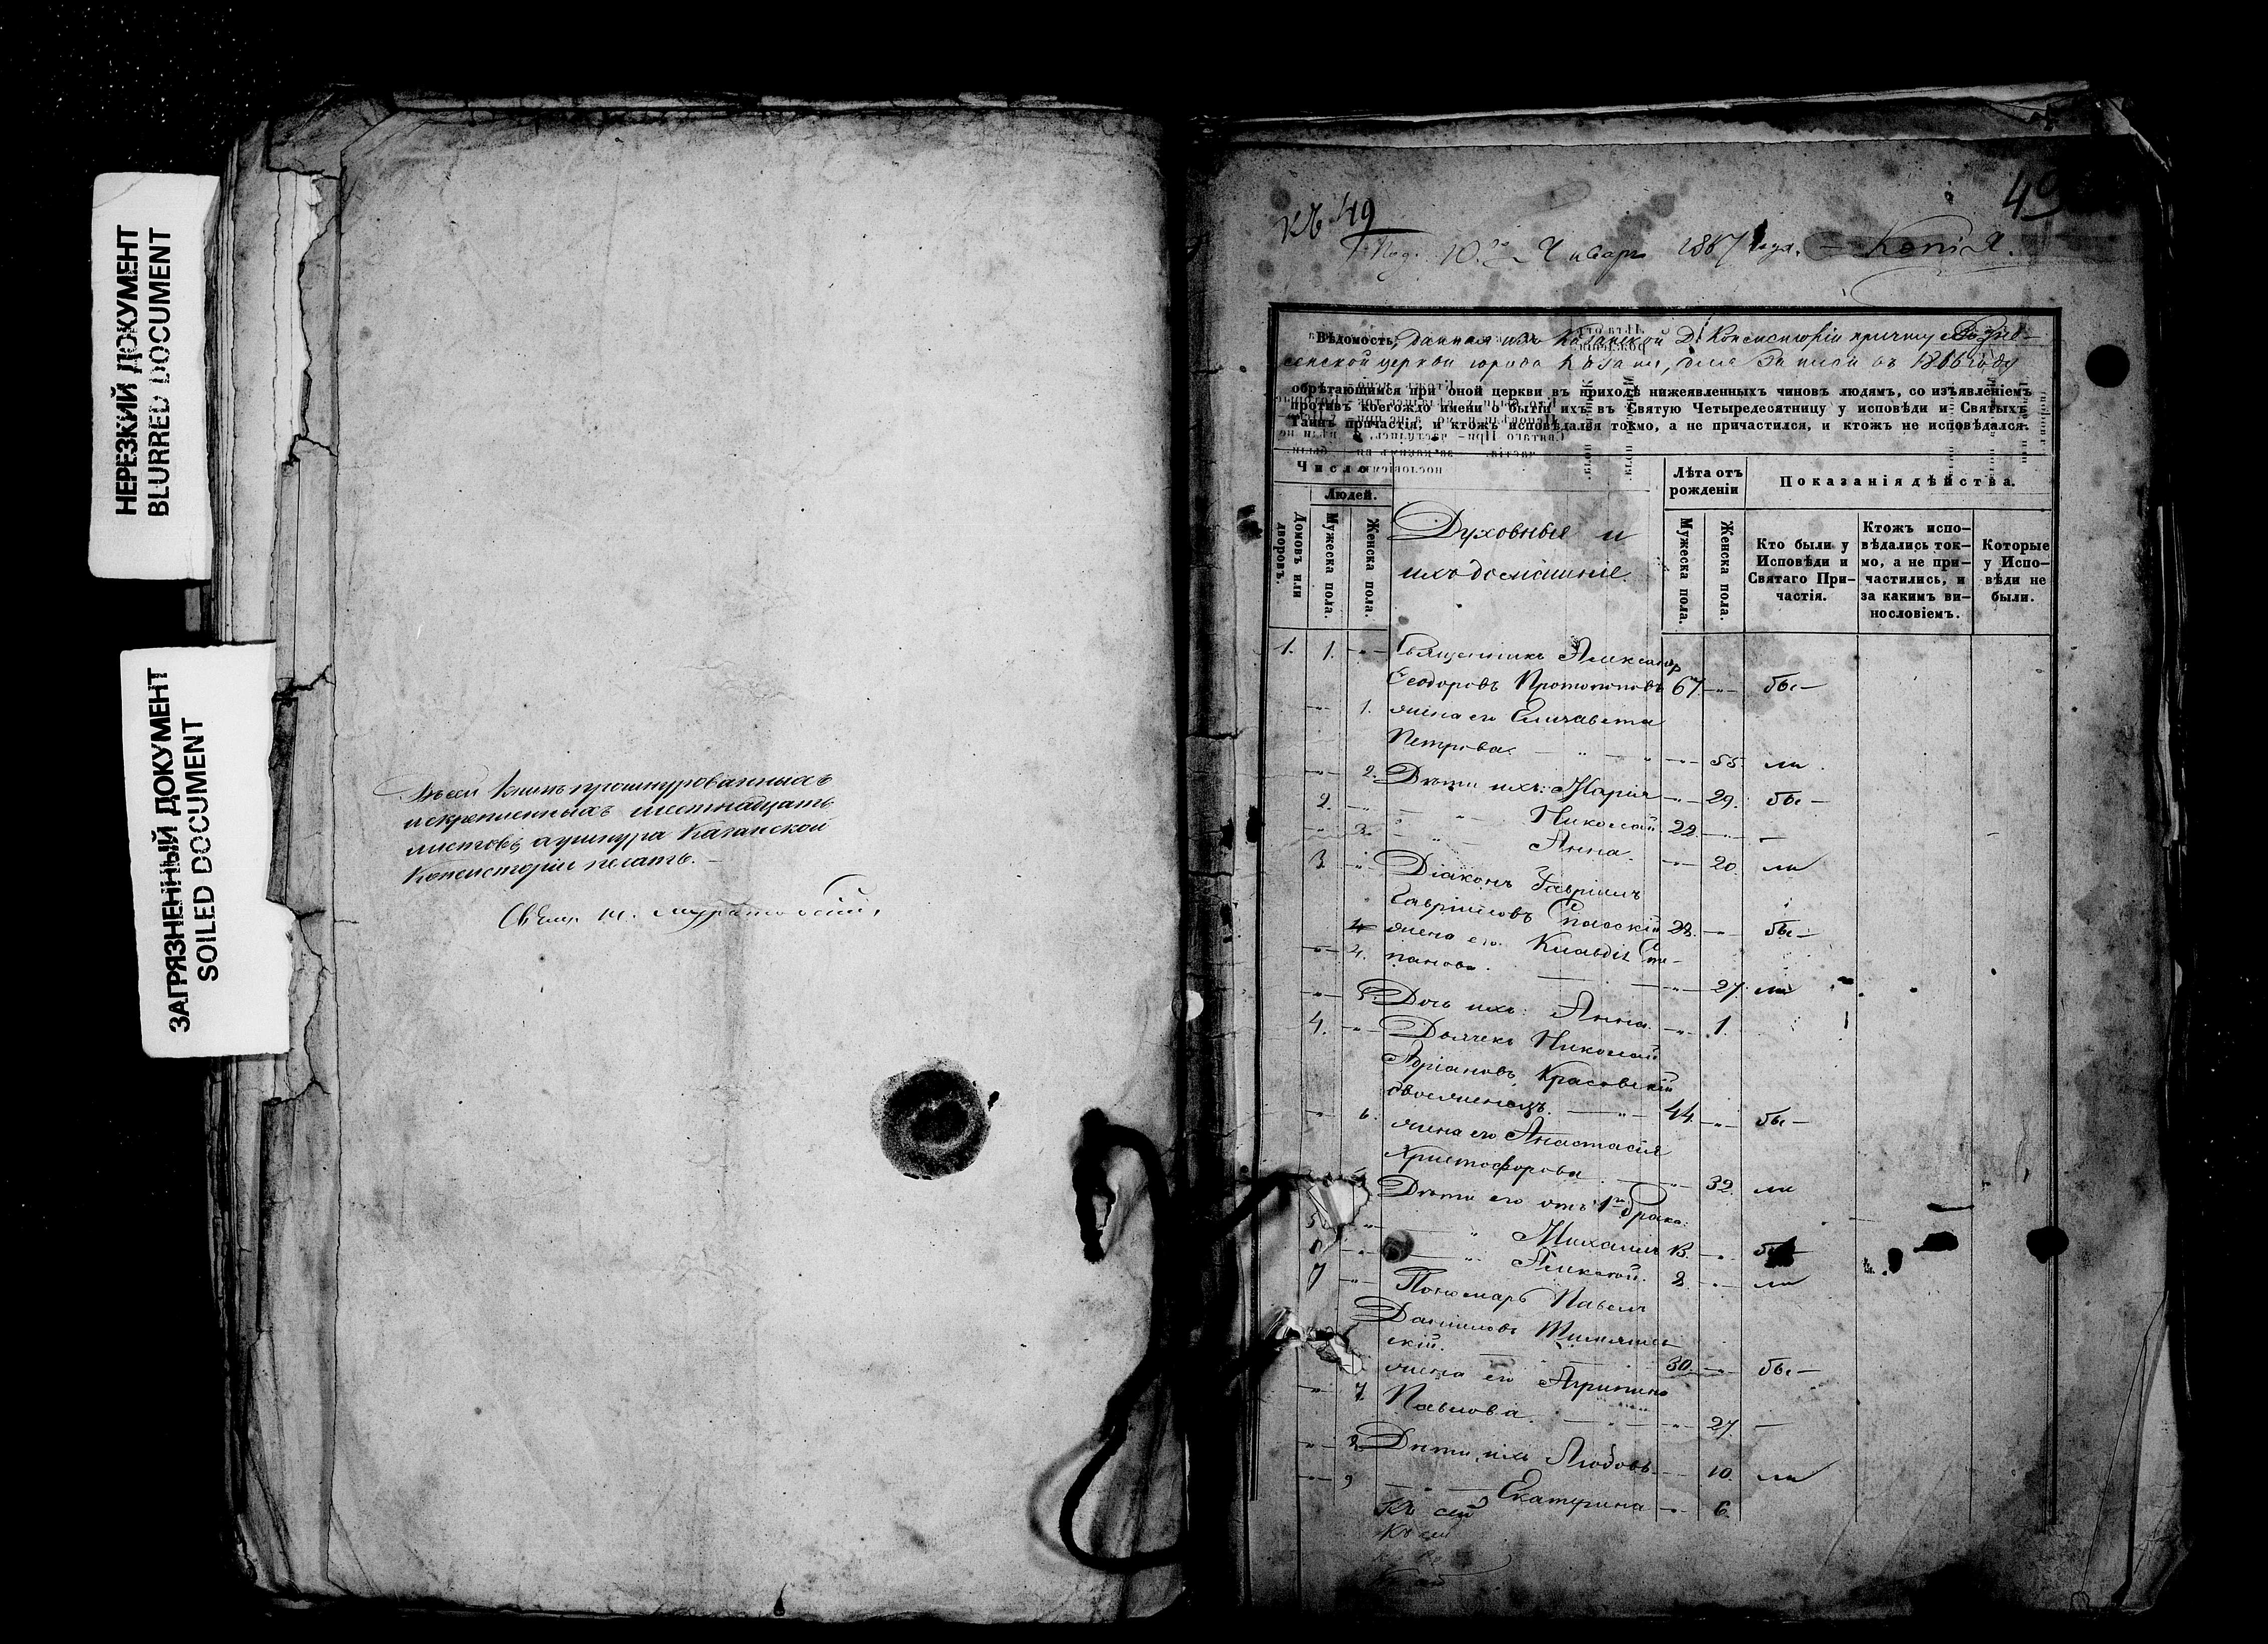 НЕРЕЗКИЙ ДОКУМЕНТ
BLURRED DOCUMENT
ЗАГРЯЗНЕННЫЙ ДОКУМЕНТ
SOILED DOCUMENT
Въ сей книгѣ прошнурованныхъ
и скрепленныхъ шестнадцать
листовъ, а у шнура Казанской
Консисторіи печать.
49
Къ № 49
Под. 10го Января 1867 года. — Копія.
Вѣдомость, данная изъ Казанской Д. Консисторіи причту Вознесенской церкви города Казани, для записи въ 1866 году
обрѣтающимся при оной церкви въ приходѣ нижеявленныхъ чиновъ людямъ, со изъявленіемъ
противъ коегождо имени о бытіи ихъ въ Святую Четыредесятницу у исповѣди и Святыхъ
Таинъ причастія, и ктожъ исповѣдался токмо, а не причастился, и ктожъ не исповѣдался.
Число
Людей.
Домовъ или дворовъ.
Мужеска пола.
Женска пола.
Духовные и
ихъ домашніе.
Лѣта отъ рожденіи
Мужеска пола.
Женска пола.
Показанія дѣйства.
Кто были у Исповѣди и Святаго Причастія.
Ктожъ исповѣдались токмо, а не причастились, и за какимъ винословіемъ.
Которые у Исповѣди не были.
1. 1. Священникъ Александр
Ѳеодоровъ Протопоповъ 67 бы—
1. жена его Елизавета
Петрова 55 ли
2. Дѣти ихъ: Марія 29. бы—
2. Николай 22.
3. Анна. 20. ли
3. Діаконъ Гавріилъ
Гавріиловъ Спасскій 28. бы—
4 жена его Клавдія Сте-
4. панова. 27. ли
5. Дочь ихъ: Анна 1.
4. Дьячекъ Николай
Адріановъ Красовскій
двоеженецъ. 44. бы—
6. жена его Анастасія
Христофорова 32. ли
Дѣти его отъ 1го брака:
5 Михаилъ 13. бы—
6 Алексѣй. 8. ли
7 Пономарь Павелъ
Даниловъ
скій. 30. бы—
жена его Агрипина
7. Павлова. 27.
8 Дѣти ихъ Любовь 10. ли
9 Екатерина 6.